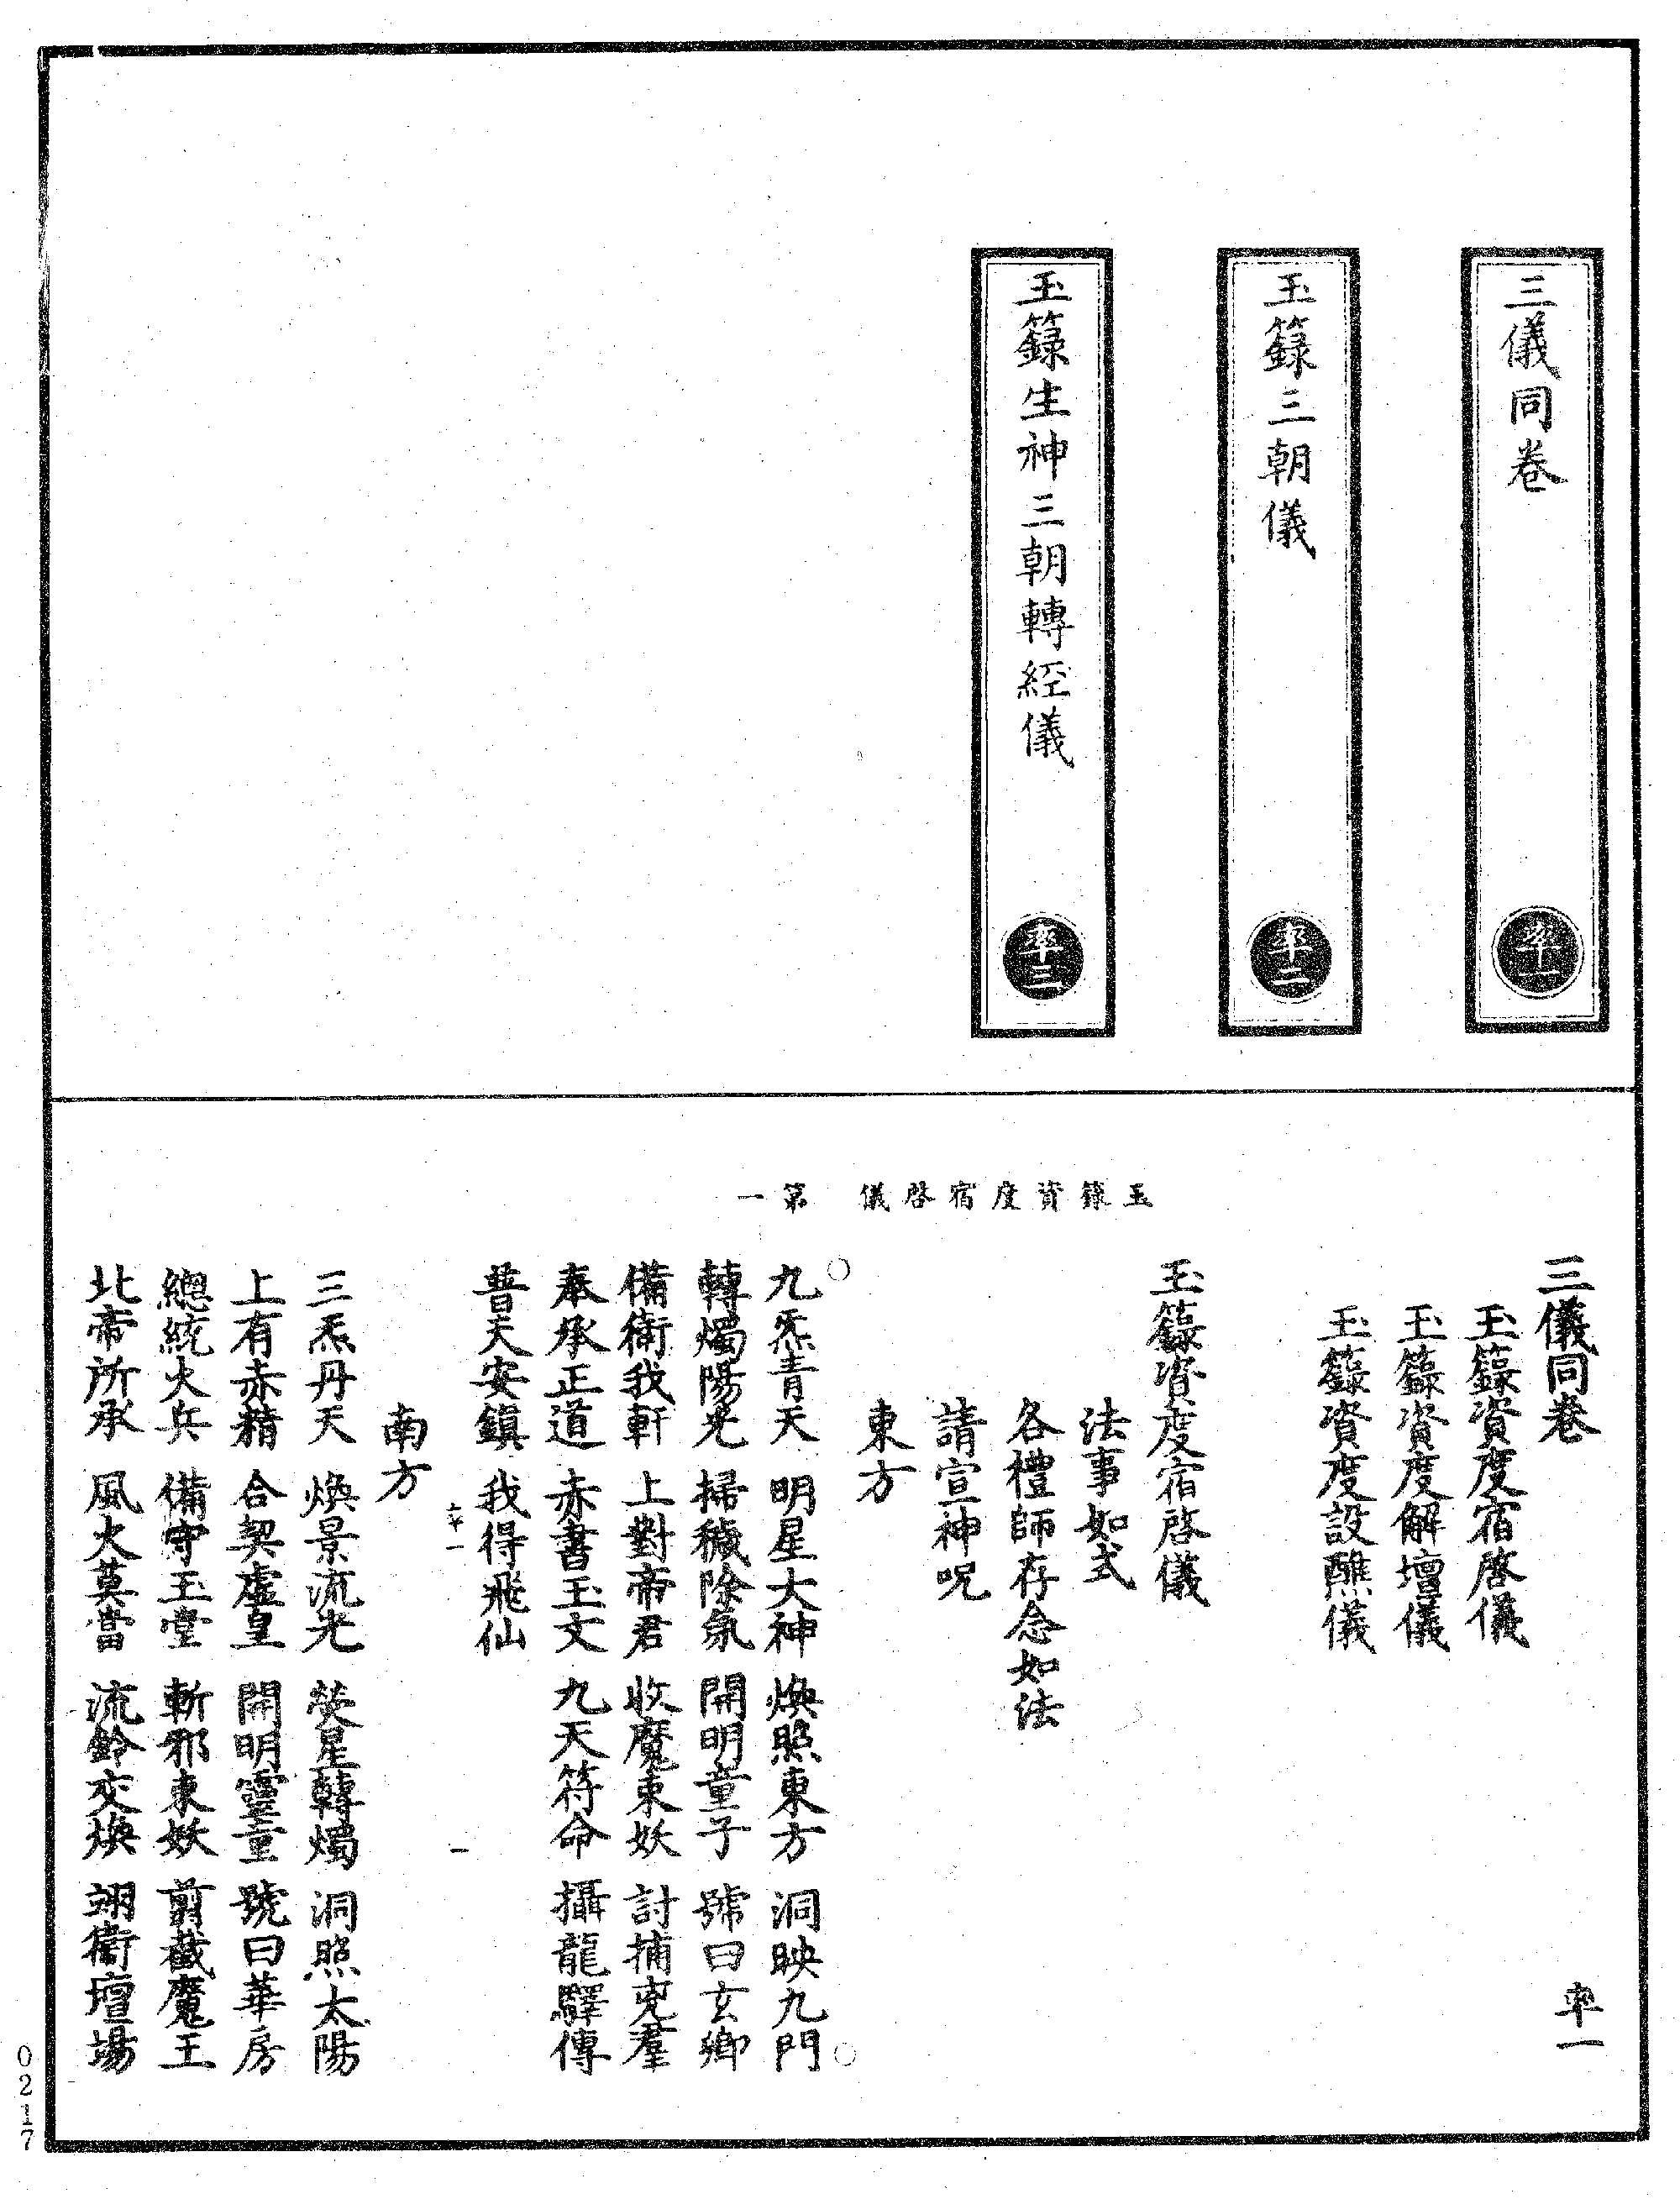 三儀同卷
率一
玉籙三朝儀
率二
玉籙生神三朝轉經儀
率三
玉籙資度宿啓儀　第一
三儀同卷　率一
玉籙資度宿啓儀
玉籙資度解壇儀
玉籙資度設醮儀
玉籙資度宿啓儀
法事如式
各禮師存念如法
請宣神呪
東方
九炁青天　明星大神　煥照東方　洞映九門
轉燭陽光　掃穢除氛　開明童子　號曰玄卿
備衛我軒　上對帝君　收魔束妖　討捕兇羣
奉承正道　赤書玉文　九天符命　攝龍驛傳
普天安鎮　我得飛仙
率一　一
南方
三炁丹天　煥景流光　熒星轉燭　洞照太陽
上有赤精　合契虛皇　開明靈童　號曰華房
總統火兵　備守玉堂　斬邪束妖　剪截魔王
北帝所承　風火莫當　流鈴交煥　翊衛壇場
0217